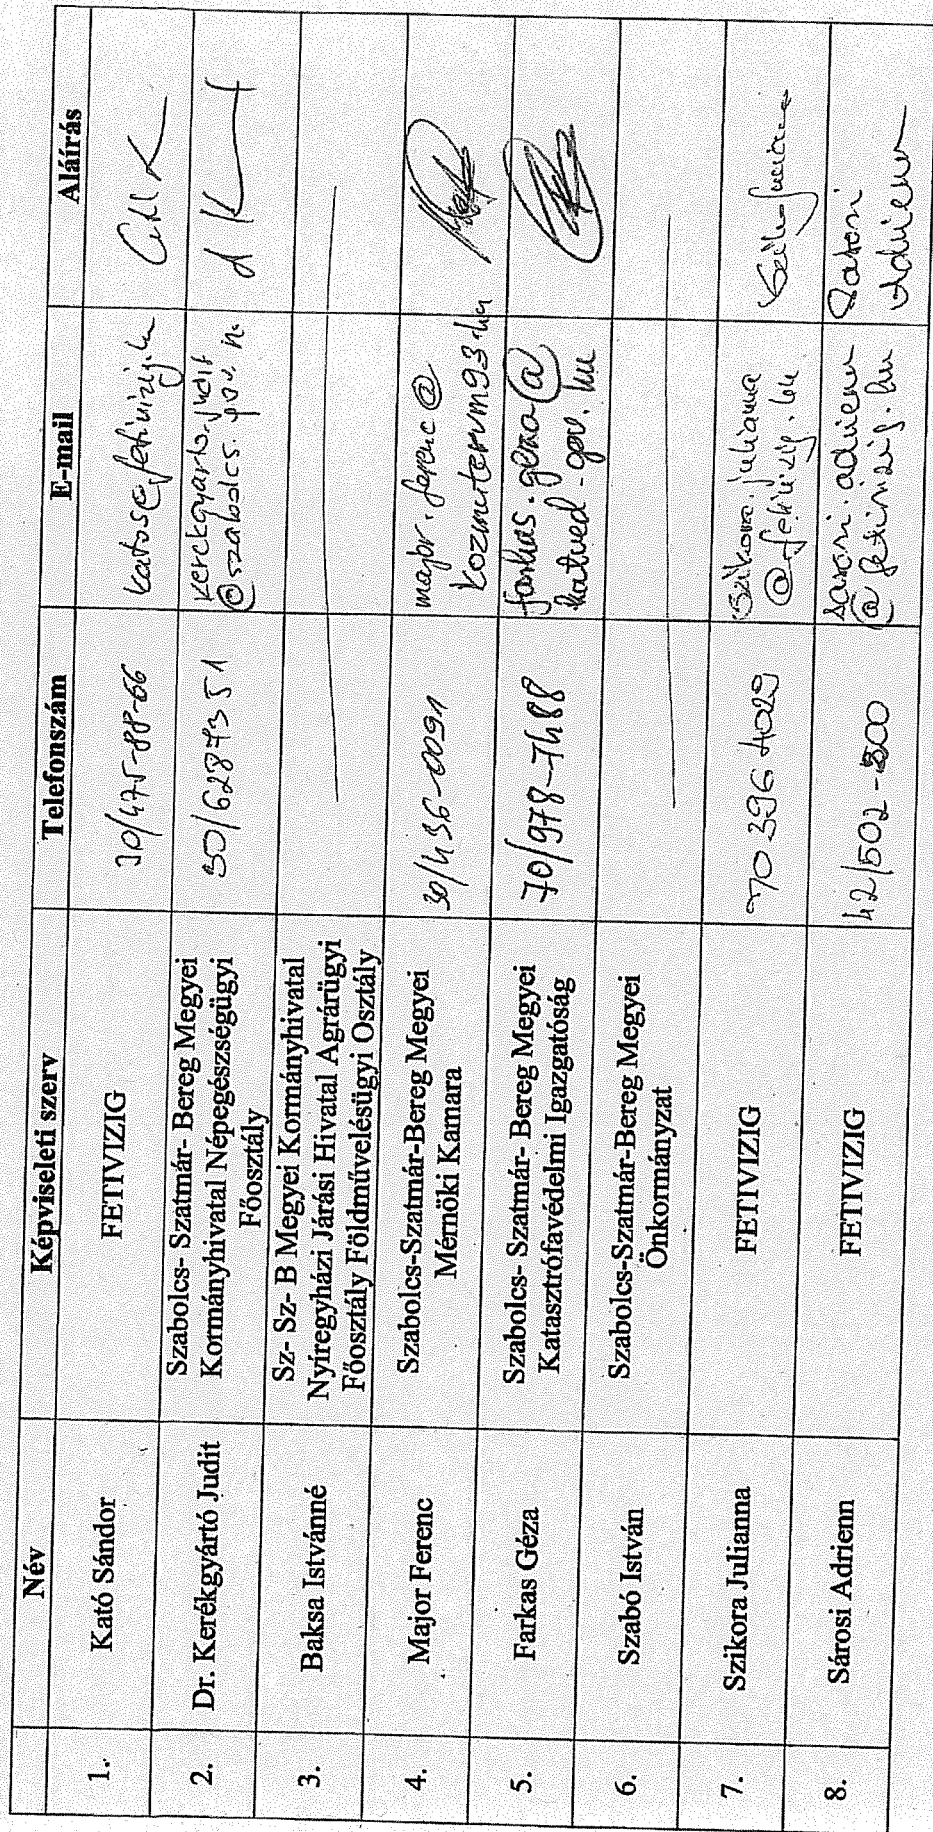 Név Képviseleti szerv Telefonszám E-mail Aláírás
1. Kató Sándor FETIVIZIG 30/475-88-66
2. Dr. Kerékgyártó Judit Szabolcs- Szatmár- Bereg Megyei
Kormányhivatal Népegészségügyi
Főosztály
30/6287351
kerekgyarto.judit
@szabolcs.gov.h
3. Baksa Istvánné Sz- Sz- B Megyei Kormányhivatal
Nyíregyházi Járási Hivatal Agrárügyi
Főosztály Földművelésügyi Osztály
4. Major Ferenc Szabolcs-Szatmár-Bereg Megyei
Mérnöki Kamara
30/436-0091
major.ferenc@
kozmuterv93.hu
5. Farkas Géza Szabolcs- Szatmár- Bereg Megyei
Katasztrófavédelmi Igazgatóság
70/978-7488
farkas.geza@
katved.gov.hu
6. Szabó István Szabolcs-Szatmár-Bereg Megyei
Önkormányzat
7. Szikora Julianna FETIVIZIG 70 396 4029
szikora.julianna
@fetivizig.hu
8. Sárosi Adrienn FETIVIZIG 42/502-200
sarosi.adrienn
@fetivizig.hu
Sárosi
Adrienn